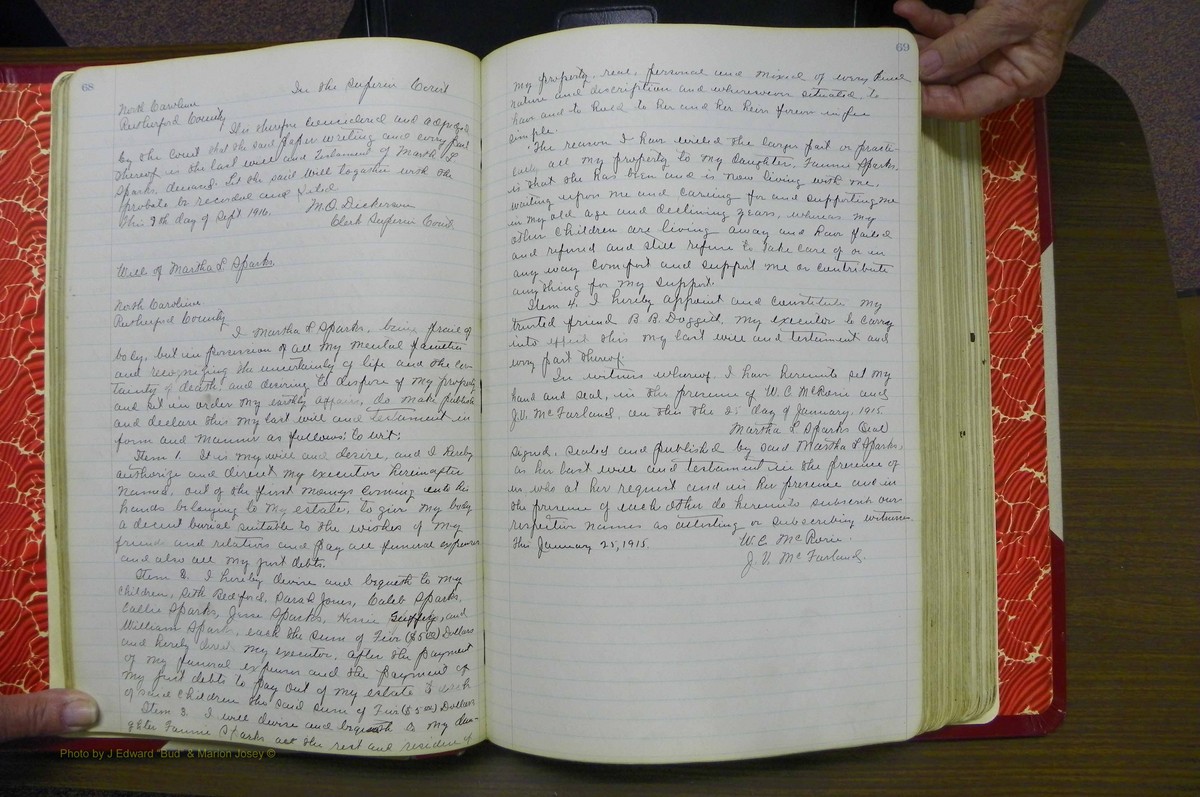 68
In the Superior Court
North Carolina
Rutherford County
It is therefore considered and adjudged
by the Court that the said paper writing and every part
thereof is the last will and Testament of Martha L
Sparks, deceased. Let the said Will together with the
probate be recorded and filed.
This 9th day of Sept 1916. M.O. Dickerson
Clerk Superior Court.
Will of Martha L Sparks
North Carolina
Rutherford County
I Martha L Sparks, being frail of
body, but in possession of all my mental faculties
and recognizing the uncertainty of life and the cer-
tainty of death, and desiring to dispose of my property
and set in order my earthly affairs, do make publish
and declare this my last will and testament in
form and manner as follows: to wit:
Item 1. It is my will and desire, and I hereby
authorize and direct my executor hereinafter
named, out of the first moneys coming into his
hands belonging to my estate, to give my body
a decent burial suitable to the wishes of my
friends and relatives and pay all funeral expenses
and also all my just debts.
Item 2. I hereby devise and bequeath to my
children, Seth Bedford, Sarah Jones, Caleb Sparks,
Callie Sparks, Jesse Sparks, and
William Sparks, each the sum of Five ($5.00) Dollars
and hereby direct my executor, after the payment
of my funeral expenses and the payment of
my just debts to pay out of my estate to each
of said children the said sum of Five ($5.00) Dollars
Item 3. I will devise and bequeath to my dau-
ghter Fannie Sparks all the rest and residue of
69
my property, real, personal and mixed of every kind
nature and discription and wheresoever situated to
have and to hold to her and her heirs forever in fee
simple.
The reason I have willed the larger part or practi-
cally all my property to my daughter, Fannie Sparks,
is that she has been and is now living with me,
waiting upon me and caring for and supporting me
in my old age and declining years, whereas my
other children are living away and have failed
and refused and still refuse to take care of or in
any way comfort and support me or contribute
anything for my support.
Item 4. I hereby appoint and constitute my
trusted friend B. B. Doggett, my executor to carry
into effect this my last will and testament and
every part thereof.
In witness whereof, I have hereunto set my
hand and seal, in the presence of W. C. McRorie and
J.V. McFarland, on this the 25 day of January, 1915
Martha L Sparks Seal
Signed, sealed and published by said Martha L Sparks,
as her last will and testament in the presence of
us, who at her request and in her presence and in
the presence of each other do hereunto subscribe our
respective names as attesting or subscribing witnesses
this January 25, 1915. W. C. McRorie.
J. V. McFarland.
Photo by J Edward "Bud" & Marion Josey ©